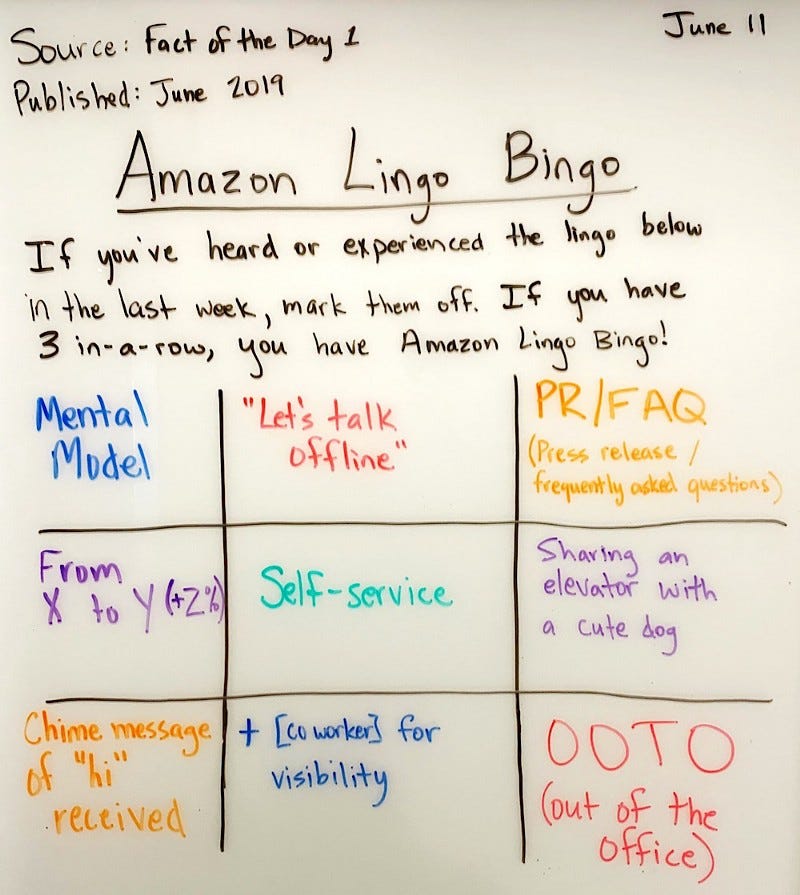 Source: Fact of the Day 1
June 11
Published: June 2019
Amazon Lingo Bingo
If you've heard or experienced the lingo below
in the last week, mark them off. If you have
3 in-a-row, you have Amazon Lingo Bingo!
Mental
Model
"Let's talk
offline"
PR/FAQ
(Press release /
frequently asked questions)
From
X to Y (+Z%)
Self-service
Sharing an
elevator with
a cute dog
Chime message
of "hi"
received
+ [coworker] for
visibility
OOTO
(out of the
office)